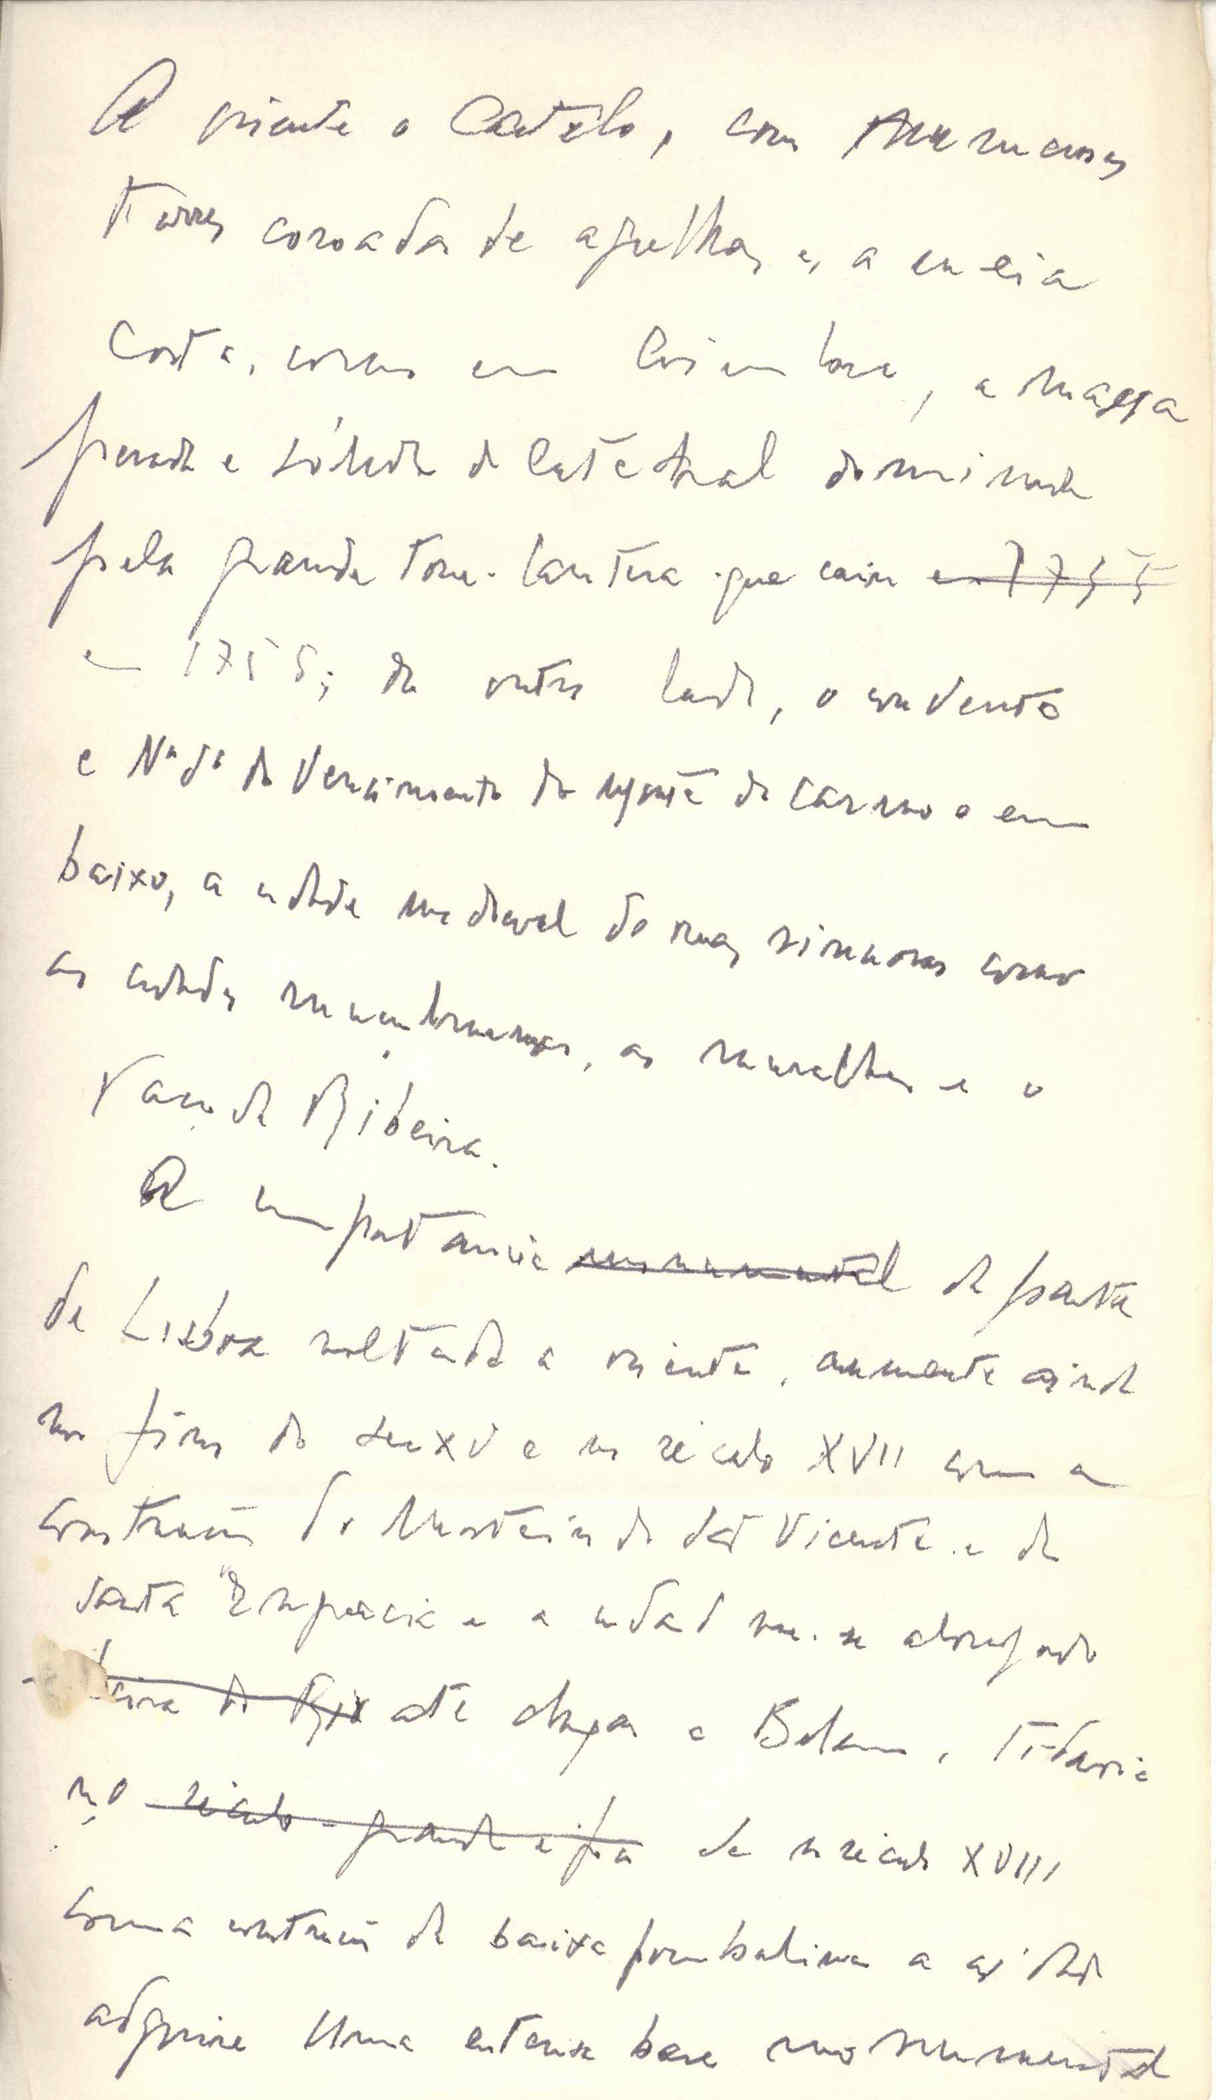 A oriente o Castelo, com numerosas
torres coroadas de agulhas e, a meia
Costa, como em Coimbra, a massa
pesada e sólida da Catedral dominada
pela grande torre-lanterna que caiu em 1755
em 1755; do outro lado, o convento
e Nª Sª do Vencimento do Monte do Carmo e em
baixo, a cidade medieval de ruas sinuosas como
as cidades muçulmanas, as muralhas e o
Paço da Ribeira.
A importancia monumental da parte
de Lisboa voltada a oriente, aumenta ainda
no fim do sec XV e no século XVII com a
construção do Mosteiro de São Vicente e de
Santa Engracia e a cidade vai-se alongando
do Rio até chegar a Belem,
no século de no seculo XVIII
com a construção da baixa pombalina a cidade
adquire uma extensa base monumental